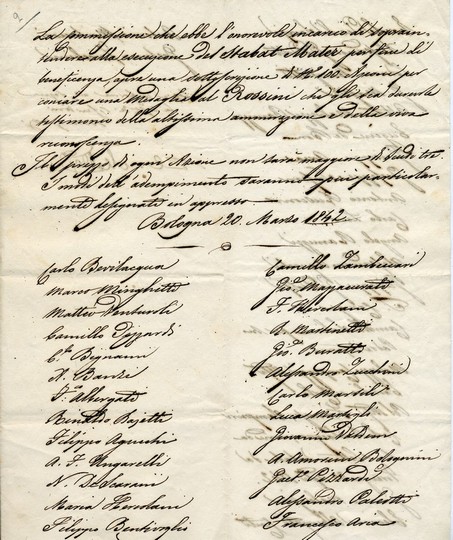 La commissione che ebbe l'onorevole incarico di soprain-
tendere alla esecuzione del Stabat Mater per fine di
beneficenza, apre una sottoscrizione di N.º 100 Azioni per
coniare una Medaglia al Rossini che gli sia durevole
testimonio dell'altissima ammirazione e della viva
riconoscenza.
Il prezzo di ogni Azione non sarà maggiore di scudi tre
I modi dell'adempimento saranno poi particolar-
mente designati in appresso.
Bologna 20. Marzo 1842
Carlo Bevilacqua
Marco Minghetti
Matteo Venturoli
Camillo Pizzardi
C. Bignami
N. Banzi
F. Albergati
Rinaldo Bajetti
Filippo Agucchi
A. F. Ungarelli
N. DeScarani
Maria Hercolani
Filippo Bentivoglio
Camillo Zambeccari
Gio. Massei
F. Hercolani
A. Martinetti
Gio. Buratti
Alessandro Zucchini
Carlo Marsili
Luca Martigli
Giovanni
A. Amorini Bolognini
Gae. Pizzardi
Alessandro Paleotti
Francesco Aria